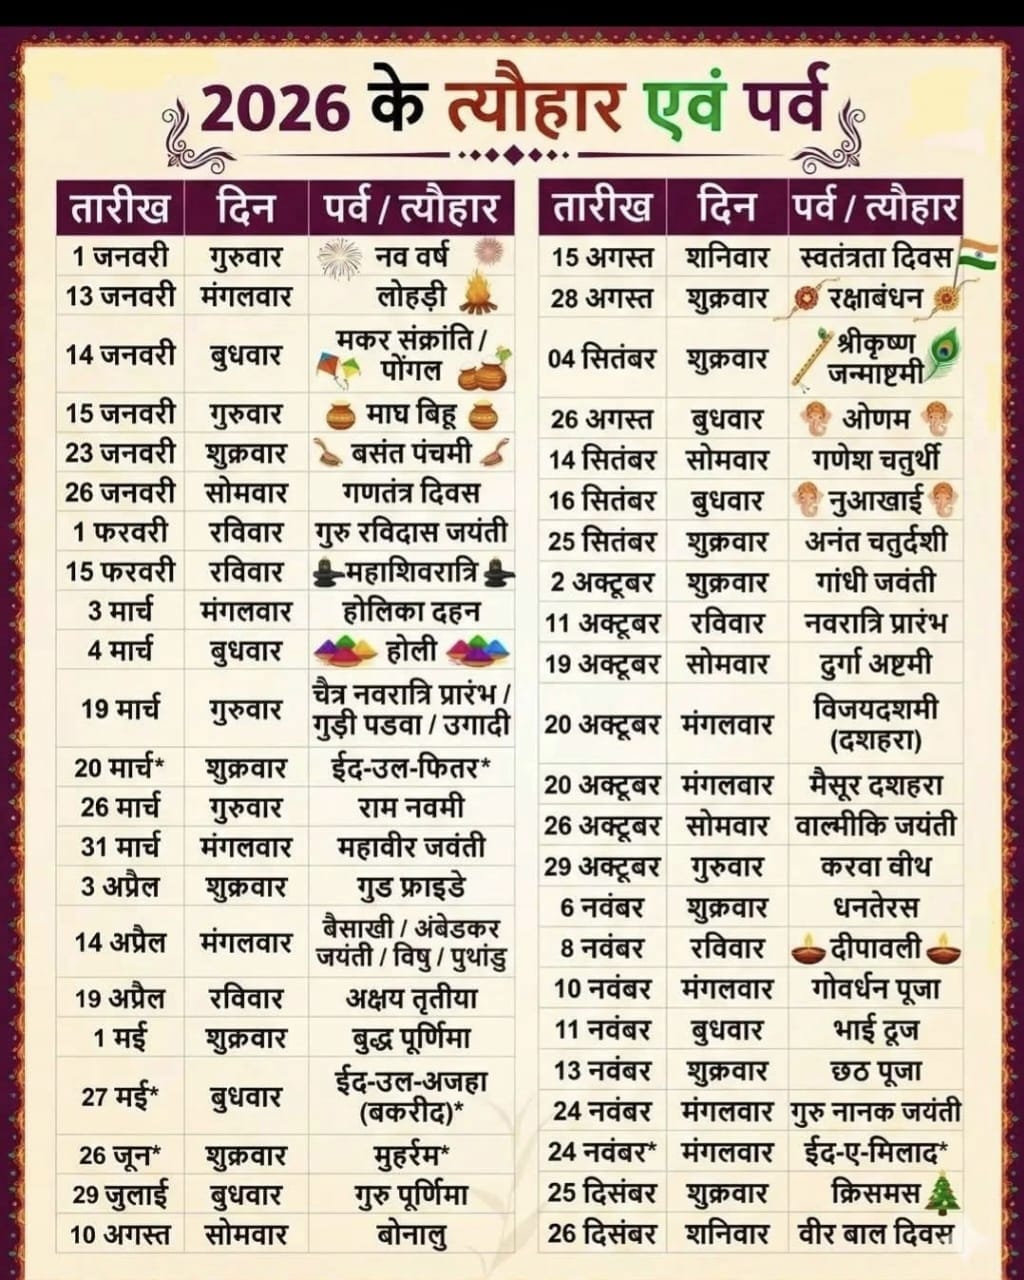 2026 के त्यौहार एवं पर्व
तारीख दिन पर्व / त्यौहार
1 जनवरी गुरुवार नव वर्ष
13 जनवरी मंगलवार लोहड़ी
14 जनवरी बुधवार मकर संक्रांति /
पोंगल
15 जनवरी गुरुवार माघ बिहू
23 जनवरी शुक्रवार बसंत पंचमी
26 जनवरी सोमवार गणतंत्र दिवस
1 फरवरी रविवार गुरु रविदास जयंती
15 फरवरी रविवार महाशिवरात्रि
3 मार्च मंगलवार होलिका दहन
4 मार्च बुधवार होली
19 मार्च गुरुवार चैत्र नवरात्रि प्रारंभ /
गुड़ी पडवा / उगादी
20 मार्च* शुक्रवार ईद-उल-फितर*
26 मार्च गुरुवार राम नवमी
31 मार्च मंगलवार महावीर जवंती
3 अप्रैल शुक्रवार गुड फ्राइडे
14 अप्रैल मंगलवार बैसाखी / अंबेडकर
जयंती / विषु / पुथांडु
19 अप्रैल रविवार अक्षय तृतीया
1 मई शुक्रवार बुद्ध पूर्णिमा
27 मई* बुधवार ईद-उल-अजहा
(बकरीद)*
26 जून* शुक्रवार मुहर्रम*
29 जुलाई बुधवार गुरु पूर्णिमा
10 अगस्त सोमवार बोनालु
तारीख दिन पर्व / त्यौहार
15 अगस्त शनिवार स्वतंत्रता दिवस
28 अगस्त शुक्रवार रक्षाबंधन
04 सितंबर शुक्रवार श्रीकृष्ण
जन्माष्टमी
26 अगस्त बुधवार ओणम
14 सितंबर सोमवार गणेश चतुर्थी
16 सितंबर बुधवार नुआखाई
25 सितंबर शुक्रवार अनंत चतुर्दशी
2 अक्टूबर शुक्रवार गांधी जवंती
11 अक्टूबर रविवार नवरात्रि प्रारंभ
19 अक्टूबर सोमवार दुर्गा अष्टमी
20 अक्टूबर मंगलवार विजयदशमी
(दशहरा)
20 अक्टूबर मंगलवार मैसूर दशहरा
26 अक्टूबर सोमवार वाल्मीकि जयंती
29 अक्टूबर गुरुवार करवा वीथ
6 नवंबर शुक्रवार धनतेरस
8 नवंबर रविवार दीपावली
10 नवंबर मंगलवार गोवर्धन पूजा
11 नवंबर बुधवार भाई दूज
13 नवंबर शुक्रवार छठ पूजा
24 नवंबर मंगलवार गुरु नानक जयंती
24 नवंबर* मंगलवार ईद-ए-मिलाद*
25 दिसंबर शुक्रवार क्रिसमस
26 दिसंबर शनिवार वीर बाल दिवस